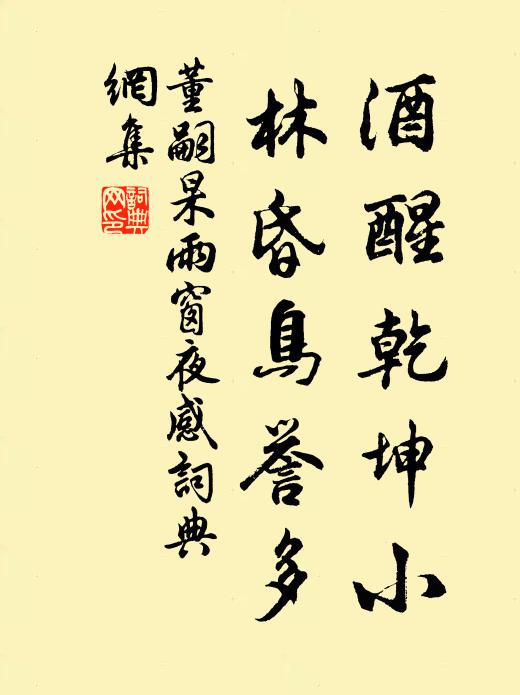 酒醒乾坤小
林昏鳥誉多
董嗣杲雨窗夜感詞典
網集
詞典網印